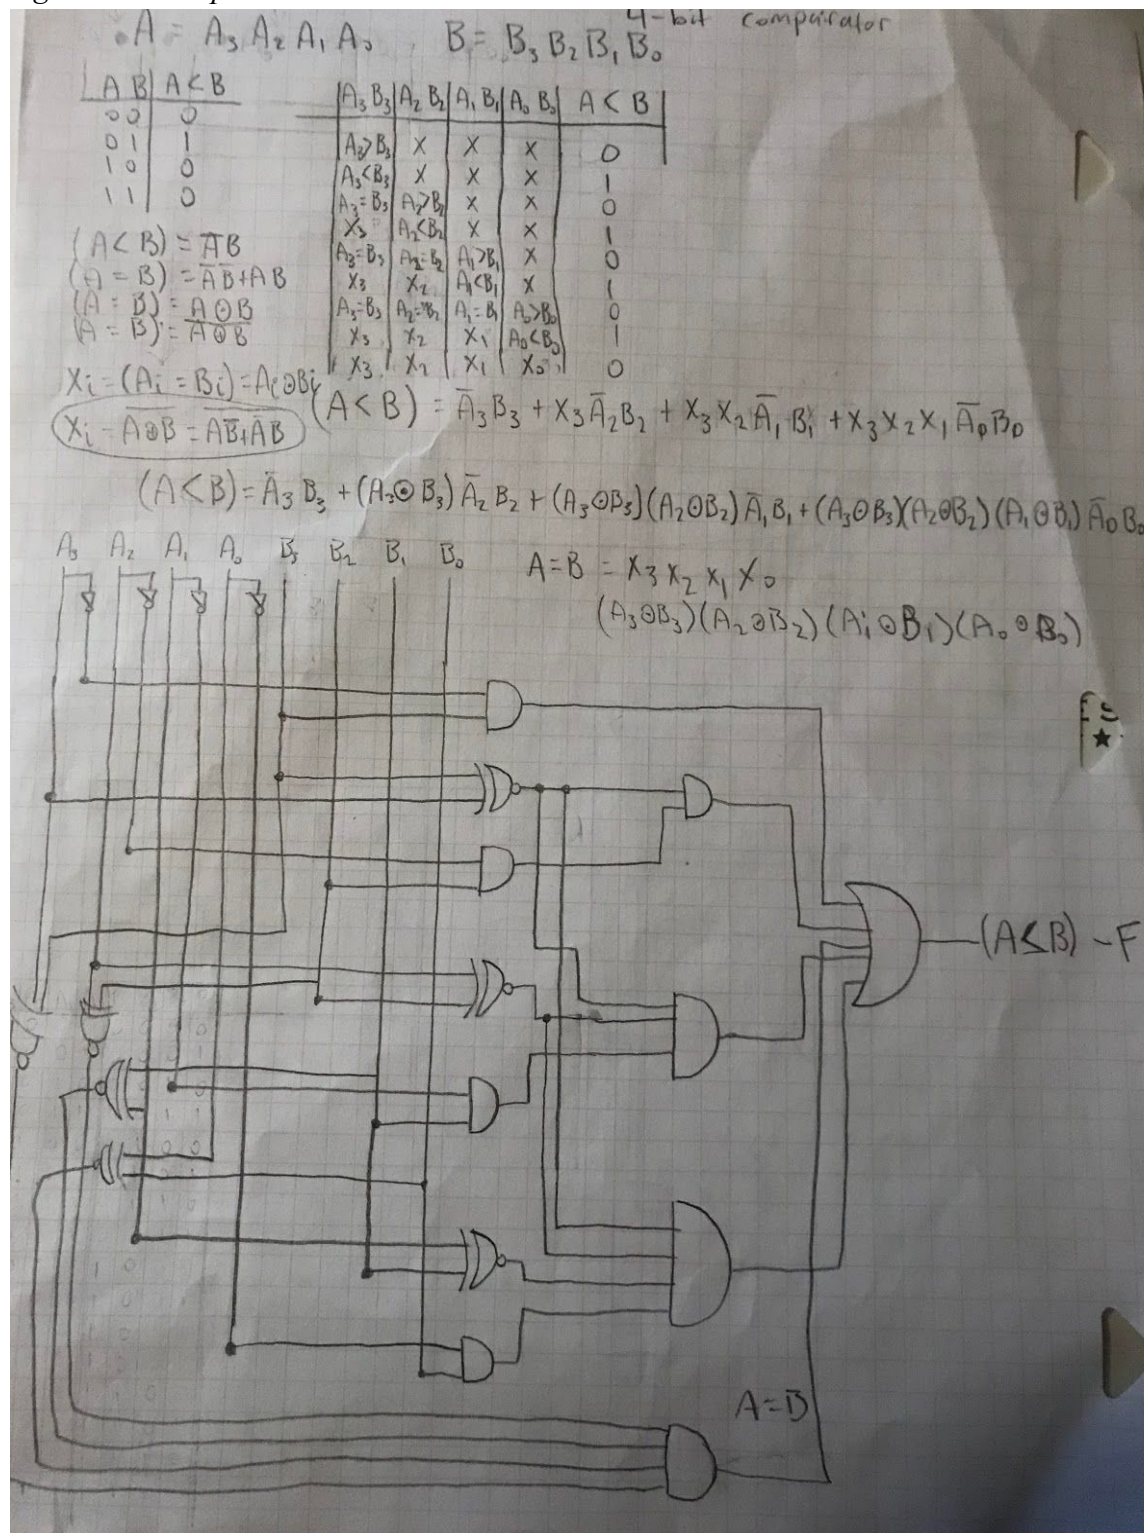 4-bit compairator
A = A₃ A₂ A₁ A₀ B = B₃ B₂ B₁ B₀
A B | A < B
0 0 | 0
0 1 | 1
1 0 | 0
1 1 | 0
(A < B) = A̅B
(A = B) = A̅B̅+AB
(A = B) = A⊙B
A₃ B₃ | A₂ B₂ | A₁ B₁ | A₀ B₀ | A < B
A₃>B₃ | X | X | X | 0
A₃<B₃ | X | X | X | 1
A₃=B₃ | A₂>B₂ | X | X | 0
X₃ | A₂<B₂ | X | X | 1
A₃=B₃ | A₂=B₂ | A₁>B₁ | X | 0
X₃ | X₂ | A₁<B₁ | X | 1
A₃=B₃ | A₂=B₂ | A₁=B₁ | A₀>B₀ | 0
X₃ | X₂ | X₁ | A₀<B₀ | 1
X₃ | X₂ | X₁ | X₀ | 0
Xi = (Ai = Bi) = Ai⊙Bi
(A < B) = A̅₃B₃ + X₃A̅₂B₂ + X₃X₂A̅₁B₁ + X₃X₂X₁A̅₀B₀
(A<B) = A̅₃B₃ + (A₃⊙B₃)A̅₂B₂ + (A₃⊙B₃)(A₂⊙B₂)A̅₁B₁ + (A₃⊙B₃)(A₂⊙B₂)(A₁⊙B₁)A̅₀B₀
A₃ A₂ A₁ A₀ B₃ B₂ B₁ B₀
A=B = X₃ X₂ X₁ X₀
(A₃⊙B₃)(A₂⊙B₂)(A₁⊙B₁)(A₀⊙B₀)
(A≤B) - F
A=B